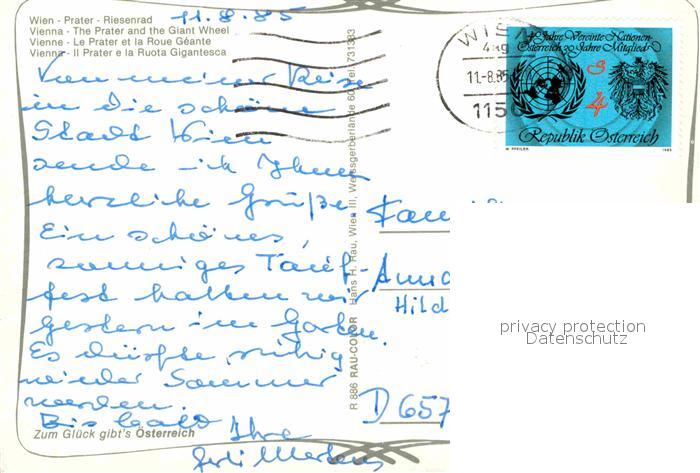 Wien - Prater - Riesenrad
Vienna - The Prater and the Giant Wheel
Vienne - Le Prater et la Roue Géante
Vienna - Il Prater e la Ruota Gigantesca
11.8.85
Von meiner Reise
in die schöne
Stadt Wien
sende ich Ihnen
herzliche Grüße.
Ein schönes,
sonniges Tauf-
fest hatten wir
gestern im Garten.
Es dürfte ruhig
wieder Sommer
werden.
Bis bald
Ihre
Zum Glück gibt's Österreich
R 886 RAU-COLOR Hans H. Rau, Wien III, Weissgerberlände 60, Tel. 731383
WIEN
11.-8.85
1150
40 Jahre Vereinte Nationen-
Österreich 30 Jahre Mitglied
S
4
Republik Österreich
W. PFEILER
1985
Hild
D 657
privacy protection
Datenschutz